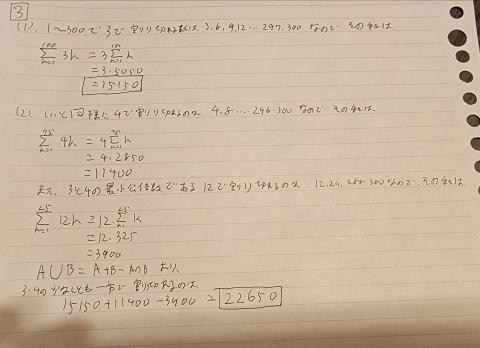 3
(1). 1～300で3で割り切れる数は 3,6,9,12… 297,300 なので その和は
100∑k=1 3k = 3 100∑k=1 k
= 3・5050
= 15150
(2). (1)と同様に 4で割り切れるのは 4,8…296,300 なので その和は
75∑k=1 4k = 4 75∑k=1 k
= 4・2850
= 11400
また、3と4の最小公倍数である12で割り切れるのは 12,24,288,300なので、その和は
25∑k=1 12k = 12・25∑k=1 k
= 12・325
= 3900
A∪B = A+B-A∩B より、
3・4の少なくとも一方で割り切れるのは、
15150+11400-3900 = 22650